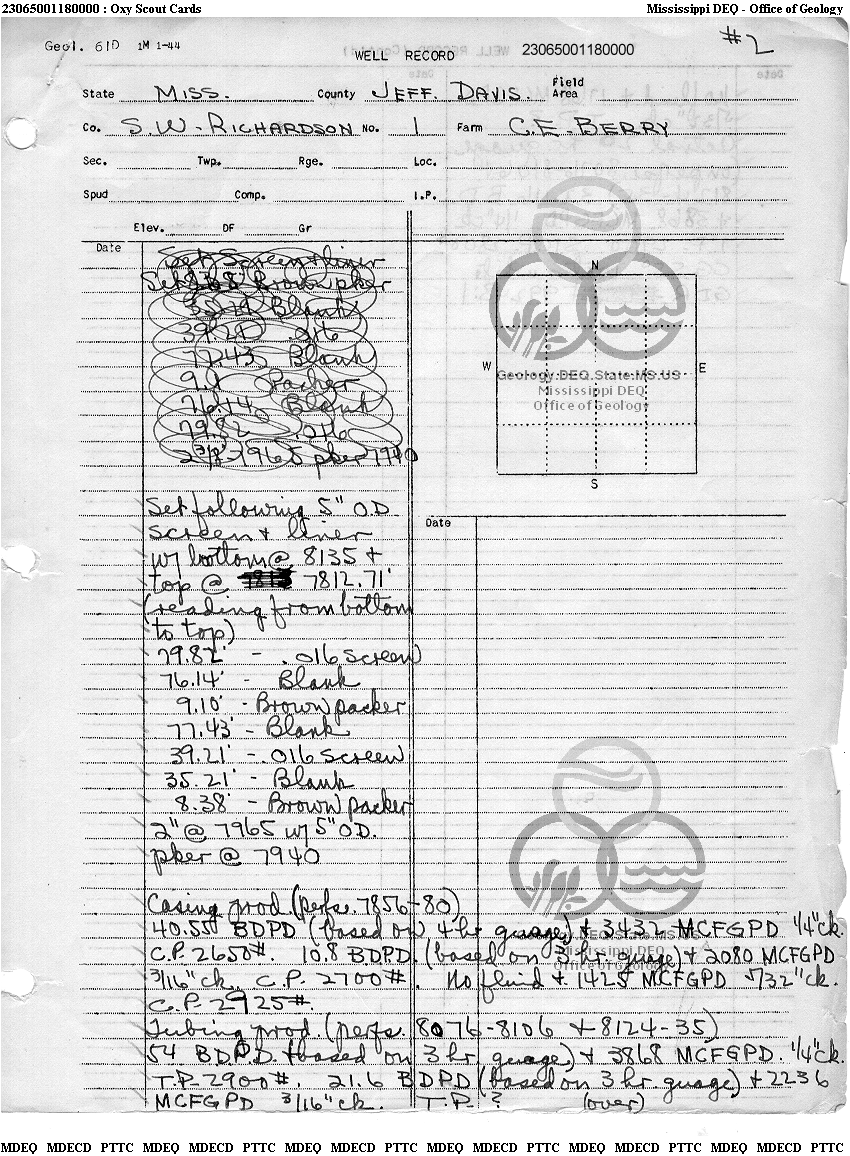 23065001180000 : Oxy Scout Cards Mississippi DEQ - Office of Geology
Geol. 61D 1M 1-44
WELL RECORD 23065001180000 #2
State MISS. County JEFF. DAVIS. Field Area
Co. S.W. RICHARDSON No. 1 Farm C.E. BERRY
Sec. Twp. Rge. Loc.
Spud Comp. I.P.
Elev. DF Gr
Date
Set Screen + liner
Set 8.38' Brown pker
Blank
39.21 .016
77.43 Blank
9.1 Packer
76.14 Blank
79.82 .016
2 3/8 - 7965 pker 7940
N
W E
S
Geology.DEQ.State.MS.US
Mississippi DEQ
Office of Geology
Set following 5" OD
screen + liner
w/ bottom @ 8135 +
top @ 7812.71'
(reading from bottom
to top)
79.82' - .016 screen
76.14' - Blank
9.10' - Brown packer
77.43' - Blank
39.21' - .016 screen
35.21' - Blank
8.38' - Brown packer
2" @ 7965 w/ 5" OD.
pker @ 7940
Date
Casing prod. (perfs. 7856-80)
40.55 BDPD (based on 4 hr guage) + 3435 MCFGPD 1/4" ck.
C.P. 2650#. 10.8 BDPD. (based on 3 hr. guage) + 2080 MCFGPD
3/16" ck. C.P. 2700#. No fluid + 1425 MCFGPD 5/32" ck.
C.P. 2925#.
Tubing prod. (perfs. 8076-8106 + 8124-35)
54 BDPD. (based on 3 hr guage) + 3868 MCFGPD. 1/4" ck.
T.P. 2900#. 21.6 BDPD (based on 3 hr guage) + 2236
MCFGPD 3/16" ck. T.P. ? (over)
Geology.DEQ.State.MS.US
Mississippi DEQ
Office of Geology
MDEQ MDECD PTTC MDEQ MDECD PTTC MDEQ MDECD PTTC MDEQ MDECD PTTC MDEQ MDECD PTTC MDEQ MDECD PTTC